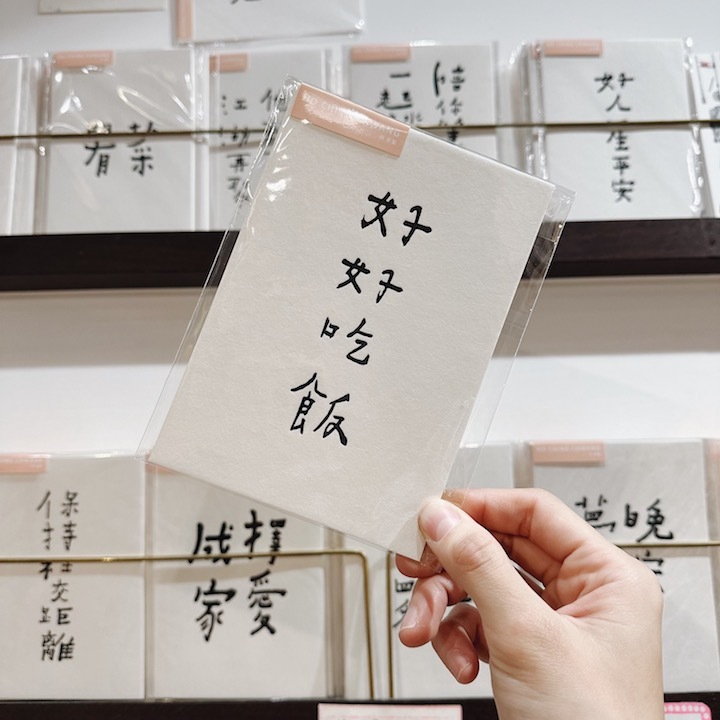 有菜
江湖再
一起
好人一生平安
好好吃飯
保持社交距離
擇愛
成家
晚安